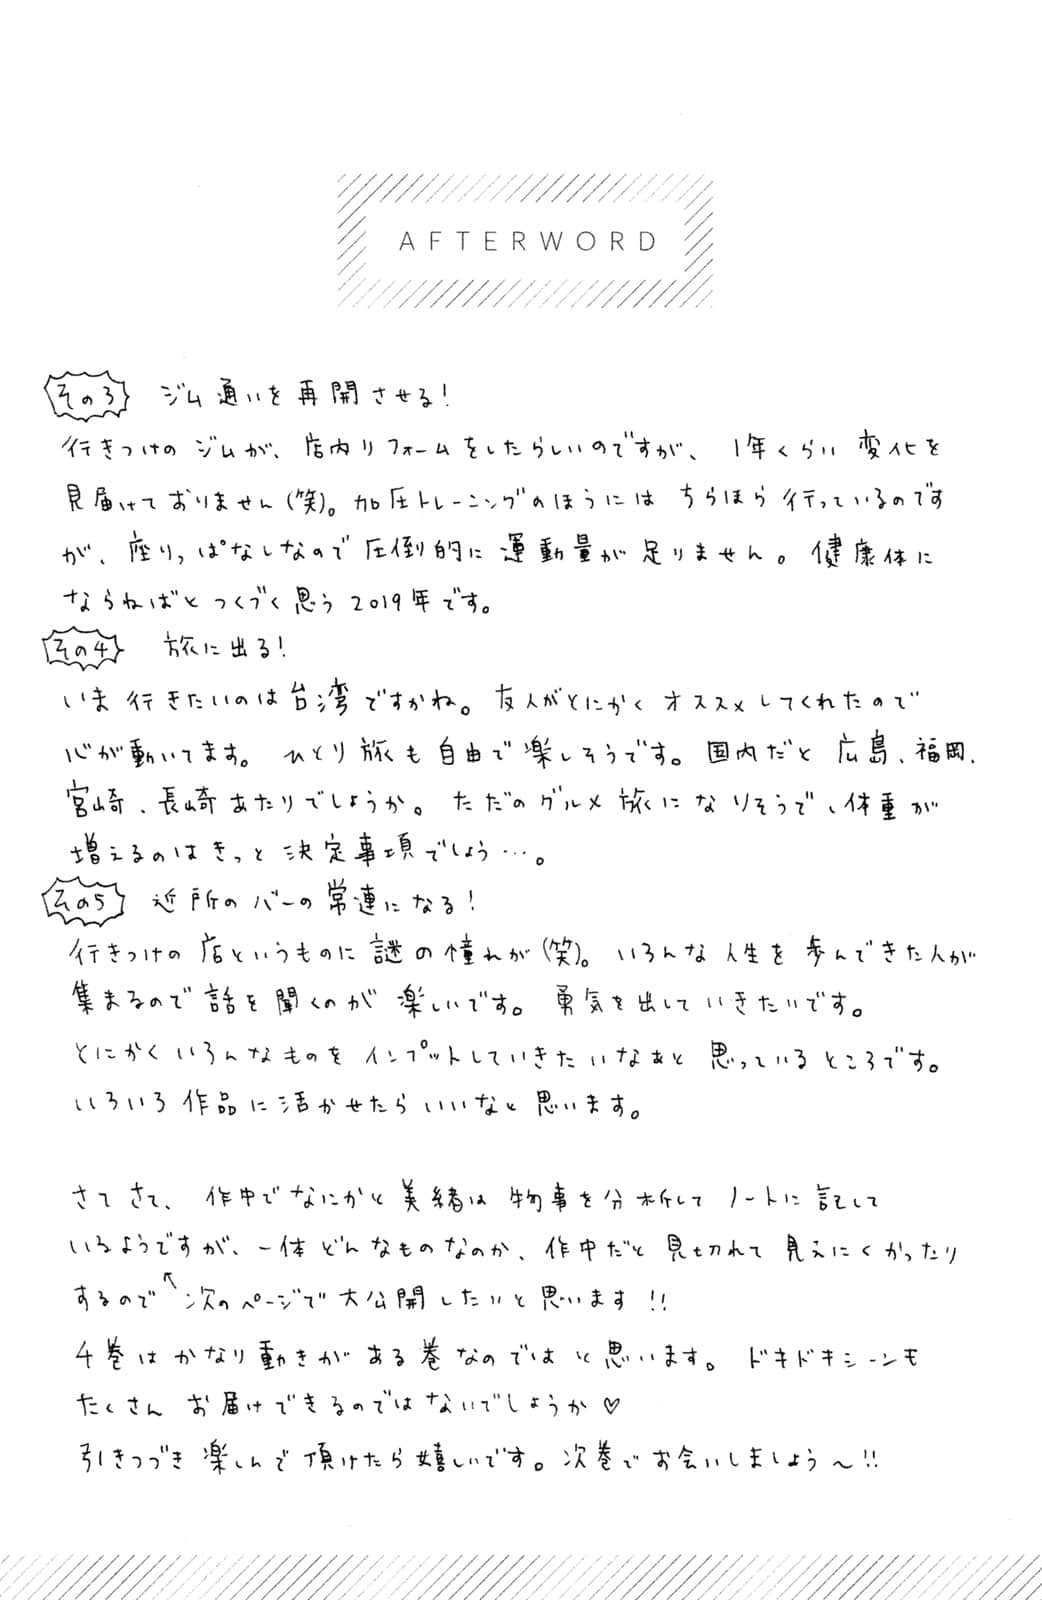 AFTERWORD
その3 ジム通いを再開させる!
行きつけのジムが、店内リフォームをしたらしいのですが、1年くらい変化を
見届けておりません(笑)。加圧トレーニングのほうにはちらほら行っているのです
が、座りっぱなしなので圧倒的に運動量が足りません。健康体に
ならねばとつくづく思う2019年です。
その4 旅に出る!
いま行きたいのは台湾ですかね。友人がとにかくオススメしてくれたので
心が動いてます。ひとり旅も自由で楽しそうです。国内だと広島、福岡、
宮崎、長崎あたりでしょうか。ただのグルメ旅になりそうで、体重が
増えるのはきっと決定事項でしょう…。
その5 近所のバーの常連になる!
行きつけの店というものに謎の憧れが(笑)。いろんな人生を歩んできた人が
集まるので話を聞くのが楽しいです。勇気を出していきたいです。
とにかくいろんなものをインプットしていきたいなぁと思っているところです。
いろいろ作品に活かせたらいいなと思います。
さてさて、作中でなにかと美緒は物事を分析してノートに記して
いるようですが、一体どんなものなのか、作中だと見切れて見えにくかったり
するので↖次のページで大公開したいと思います!!
4巻はかなり動きがある巻なのではと思います。ドキドキシーンも
たくさんお届けできるのではないでしょうか♡
引きつづき楽しんで頂けたら嬉しいです。次巻でお会いしましょう〜!!